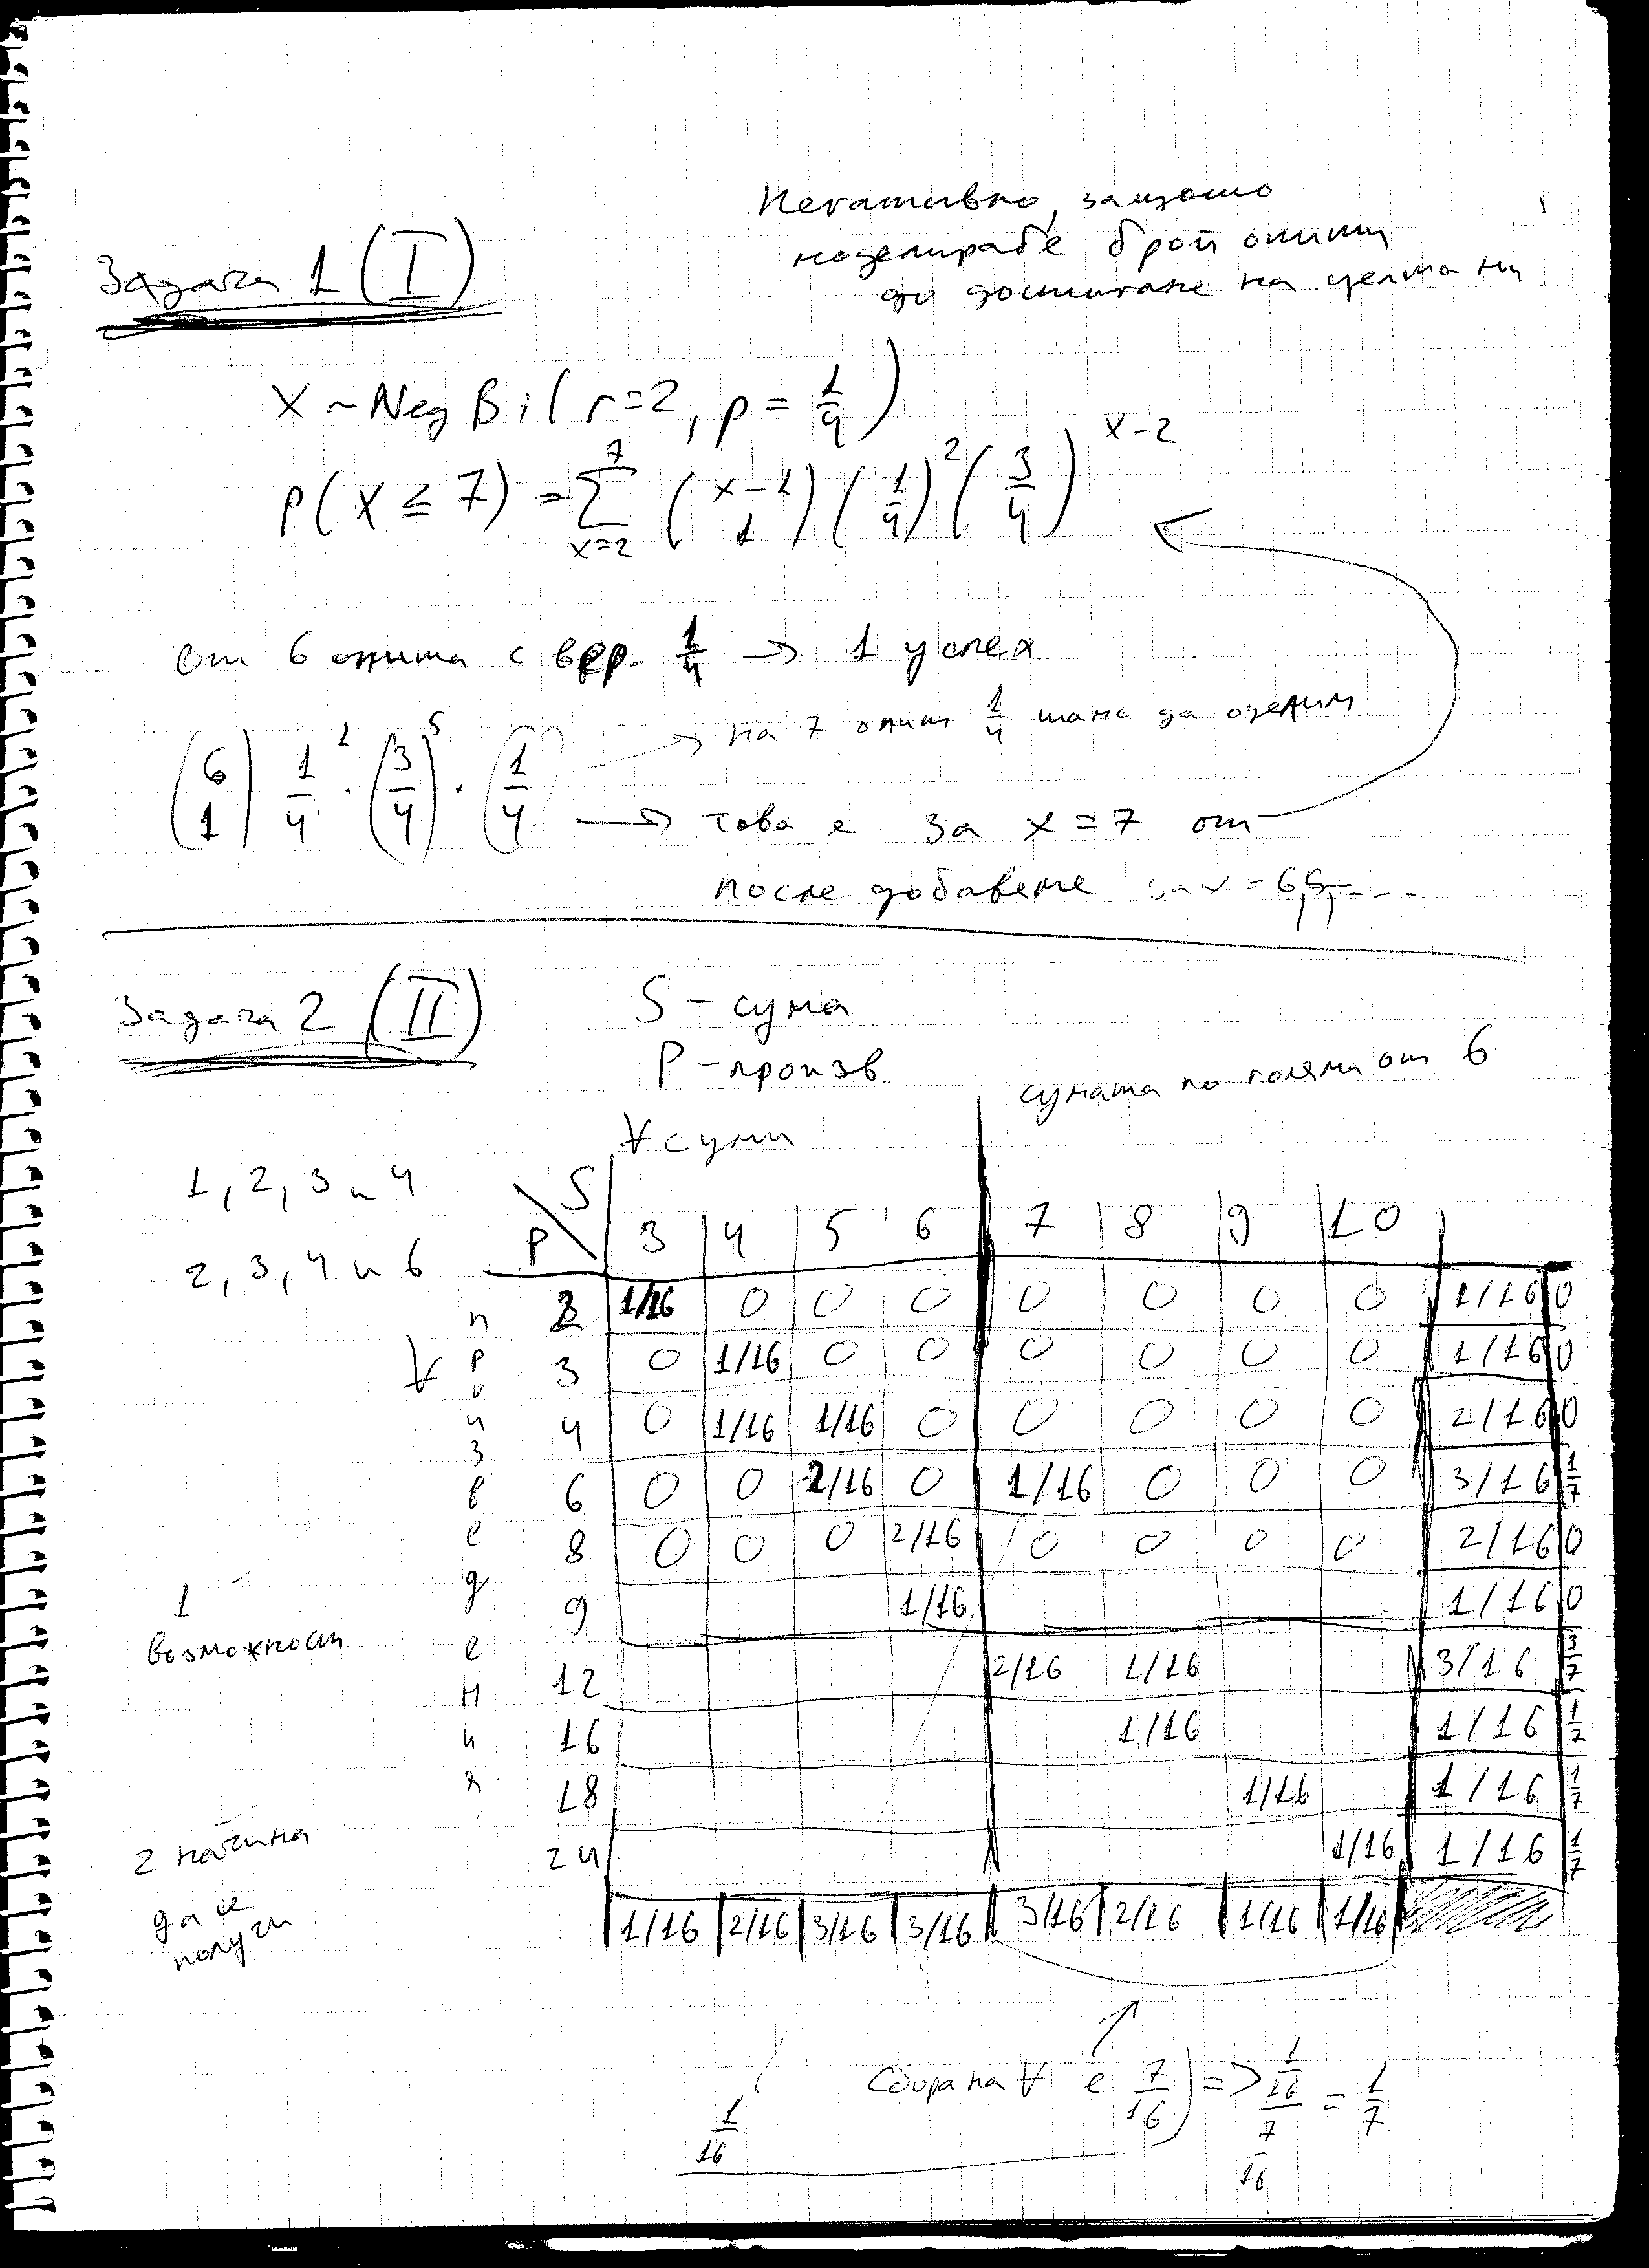 Негативно, защото
моделираме брой опити
до достигане на целта ни
Задача 1 (I)
X ~ Neg Bi( r=2, p = 1/4 )
P(X ≤ 7) = ∑_{x=2}^{7} (x-1 над 1) (1/4)^2 (3/4)^{x-2}
От 6 опита с вер. 1/4 → 1 успех
(6 над 1) 1/4^1 · (3/4)^5 · (1/4) → на 7 опит 1/4 шанс да оцелим
→ това е за x = 7 от
после добавяме за x = 6,5, ...
Задача 2 (II)
S - сума
P - произв.
сумата по голяма от 6
∀ суми
1, 2, 3 и 4
2, 3, 4 и 6
∀ произведения
P \ S | 3 | 4 | 5 | 6 | 7 | 8 | 9 | 10 |
2 | 1/16 | 0 | 0 | 0 | 0 | 0 | 0 | 0 | 1/16 | 0
3 | 0 | 1/16 | 0 | 0 | 0 | 0 | 0 | 0 | 1/16 | 0
4 | 0 | 1/16 | 1/16 | 0 | 0 | 0 | 0 | 0 | 2/16 | 0
6 | 0 | 0 | 2/16 | 0 | 1/16 | 0 | 0 | 0 | 3/16 | 1/7
8 | 0 | 0 | 0 | 2/16 | 0 | 0 | 0 | 0 | 2/16 | 0
9 | 1/16 | 1/16 | 0
12 | 2/16 | 1/16 | 3/16 | 3/7
16 | 1/16 | 1/16 | 1/7
18 | 1/16 | 1/16 | 1/7
24 | 1/16 | 1/16 | 1/7
1/16 | 2/16 | 3/16 | 3/16 | 3/16 | 2/16 | 1/16 | 1/16
1
възможност
2 начина
да се
получи
Сбора на ∀ е 7/16) => (1/16)/(7/16) = 1/7
1/16